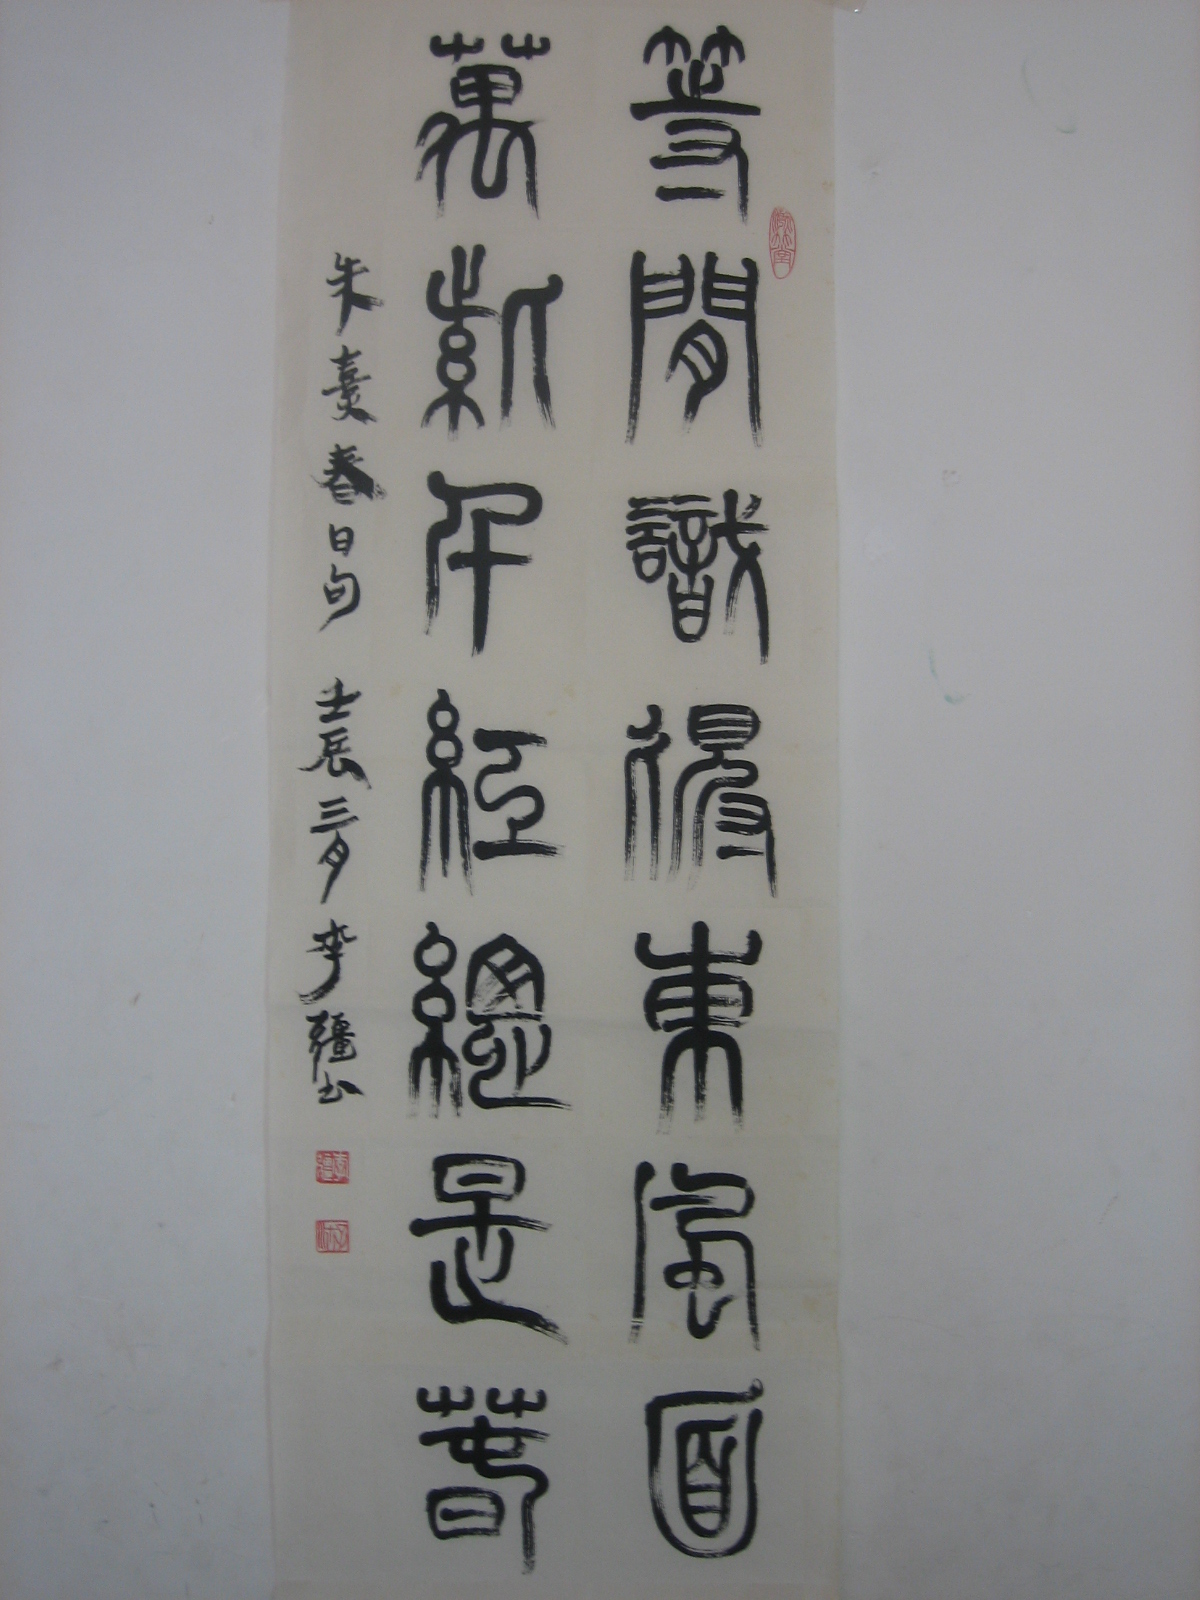 等閒識得東風面
萬紫千紅總是萅
朱熹春日句 壬辰三月 李疆书